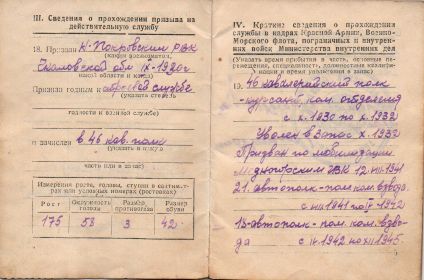 III. Сведения о прохождении призыва на
действительную службу
18. Призван Н-Покровским РВК
(каким военкоматом,
Чкаловской обл IX-1920г
какой области и когда)
Признан годным к строевой службе
(указать степень
годности к военной службе)
и зачислен в 46 кав. полк
(указать в какую
часть или в запас)
Измерения роста, головы, ступни в сантимет-
рах или условных номерах (ростовках)
Рост
Окружность головы
Размер противогаза
Размер обуви
175 58 3 42
IV. Краткие сведения о прохождении
службы в кадрах Красной Армии, Военно-
Морского флота, пограничных и внутрен-
них войск Министерства внутренних дел
(Указать время прибытия в часть, основные пе-
ремещения, специальность, должностную квалифи-
кацию и время увольнения в запас)
19. 46 кавалерийский полк
-курсант, ком. отделения
с X.1930 по X.1932
Уволен в запас X.1932
Призван по мобилизации
Медногорским ГВК 12.VIII.1941
21. автополк-пом.ком.взвода.
с VIII 1941 по IV 1942
13-автополк-пом.ком.взво-
да с IV.1942 по XII 1945.